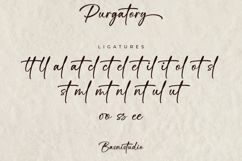 Purgatory
LIGATURES
tt ll al at cl ct el et il it ol ot sl
st ml mt nl nt ul ut
oo ss ee
Bacastudio